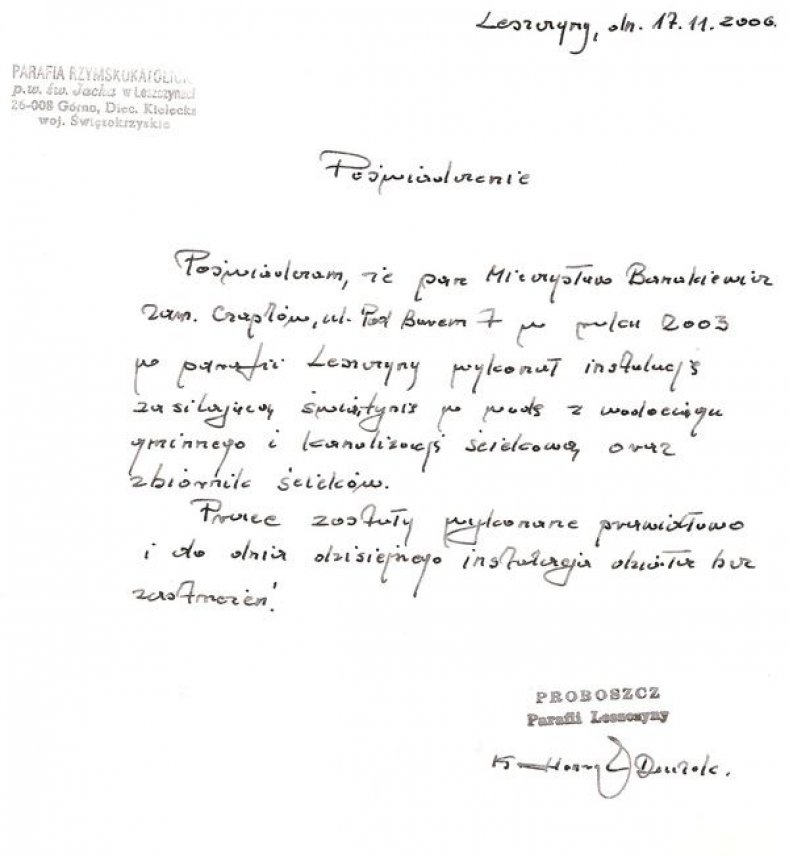 Leszczyny, dn. 17.11.2006.
PARAFIA RZYMSKOKATOLICK
p.w. św. Jacka w Leszczynach
26-008 Górno, Diec. Kielecka
woj. Świętokrzyskie
Poświadczenie
Poświadczam, że pan Mieczysław Banakiewicz
zam. Czaplów, ul. Pod 7 w roku 2003
w parafii Leszczyny wykonał instalację
zasilającą świątynię w wodę z wodociągu
gminnego i kanalizację ściekową oraz
zbiornik ścieków.
Prace zostały wykonane prawidłowo
i do dnia dzisiejszego instalacja działa bez
zastrzeżeń!
PROBOSZCZ
Parafii Leszczyny